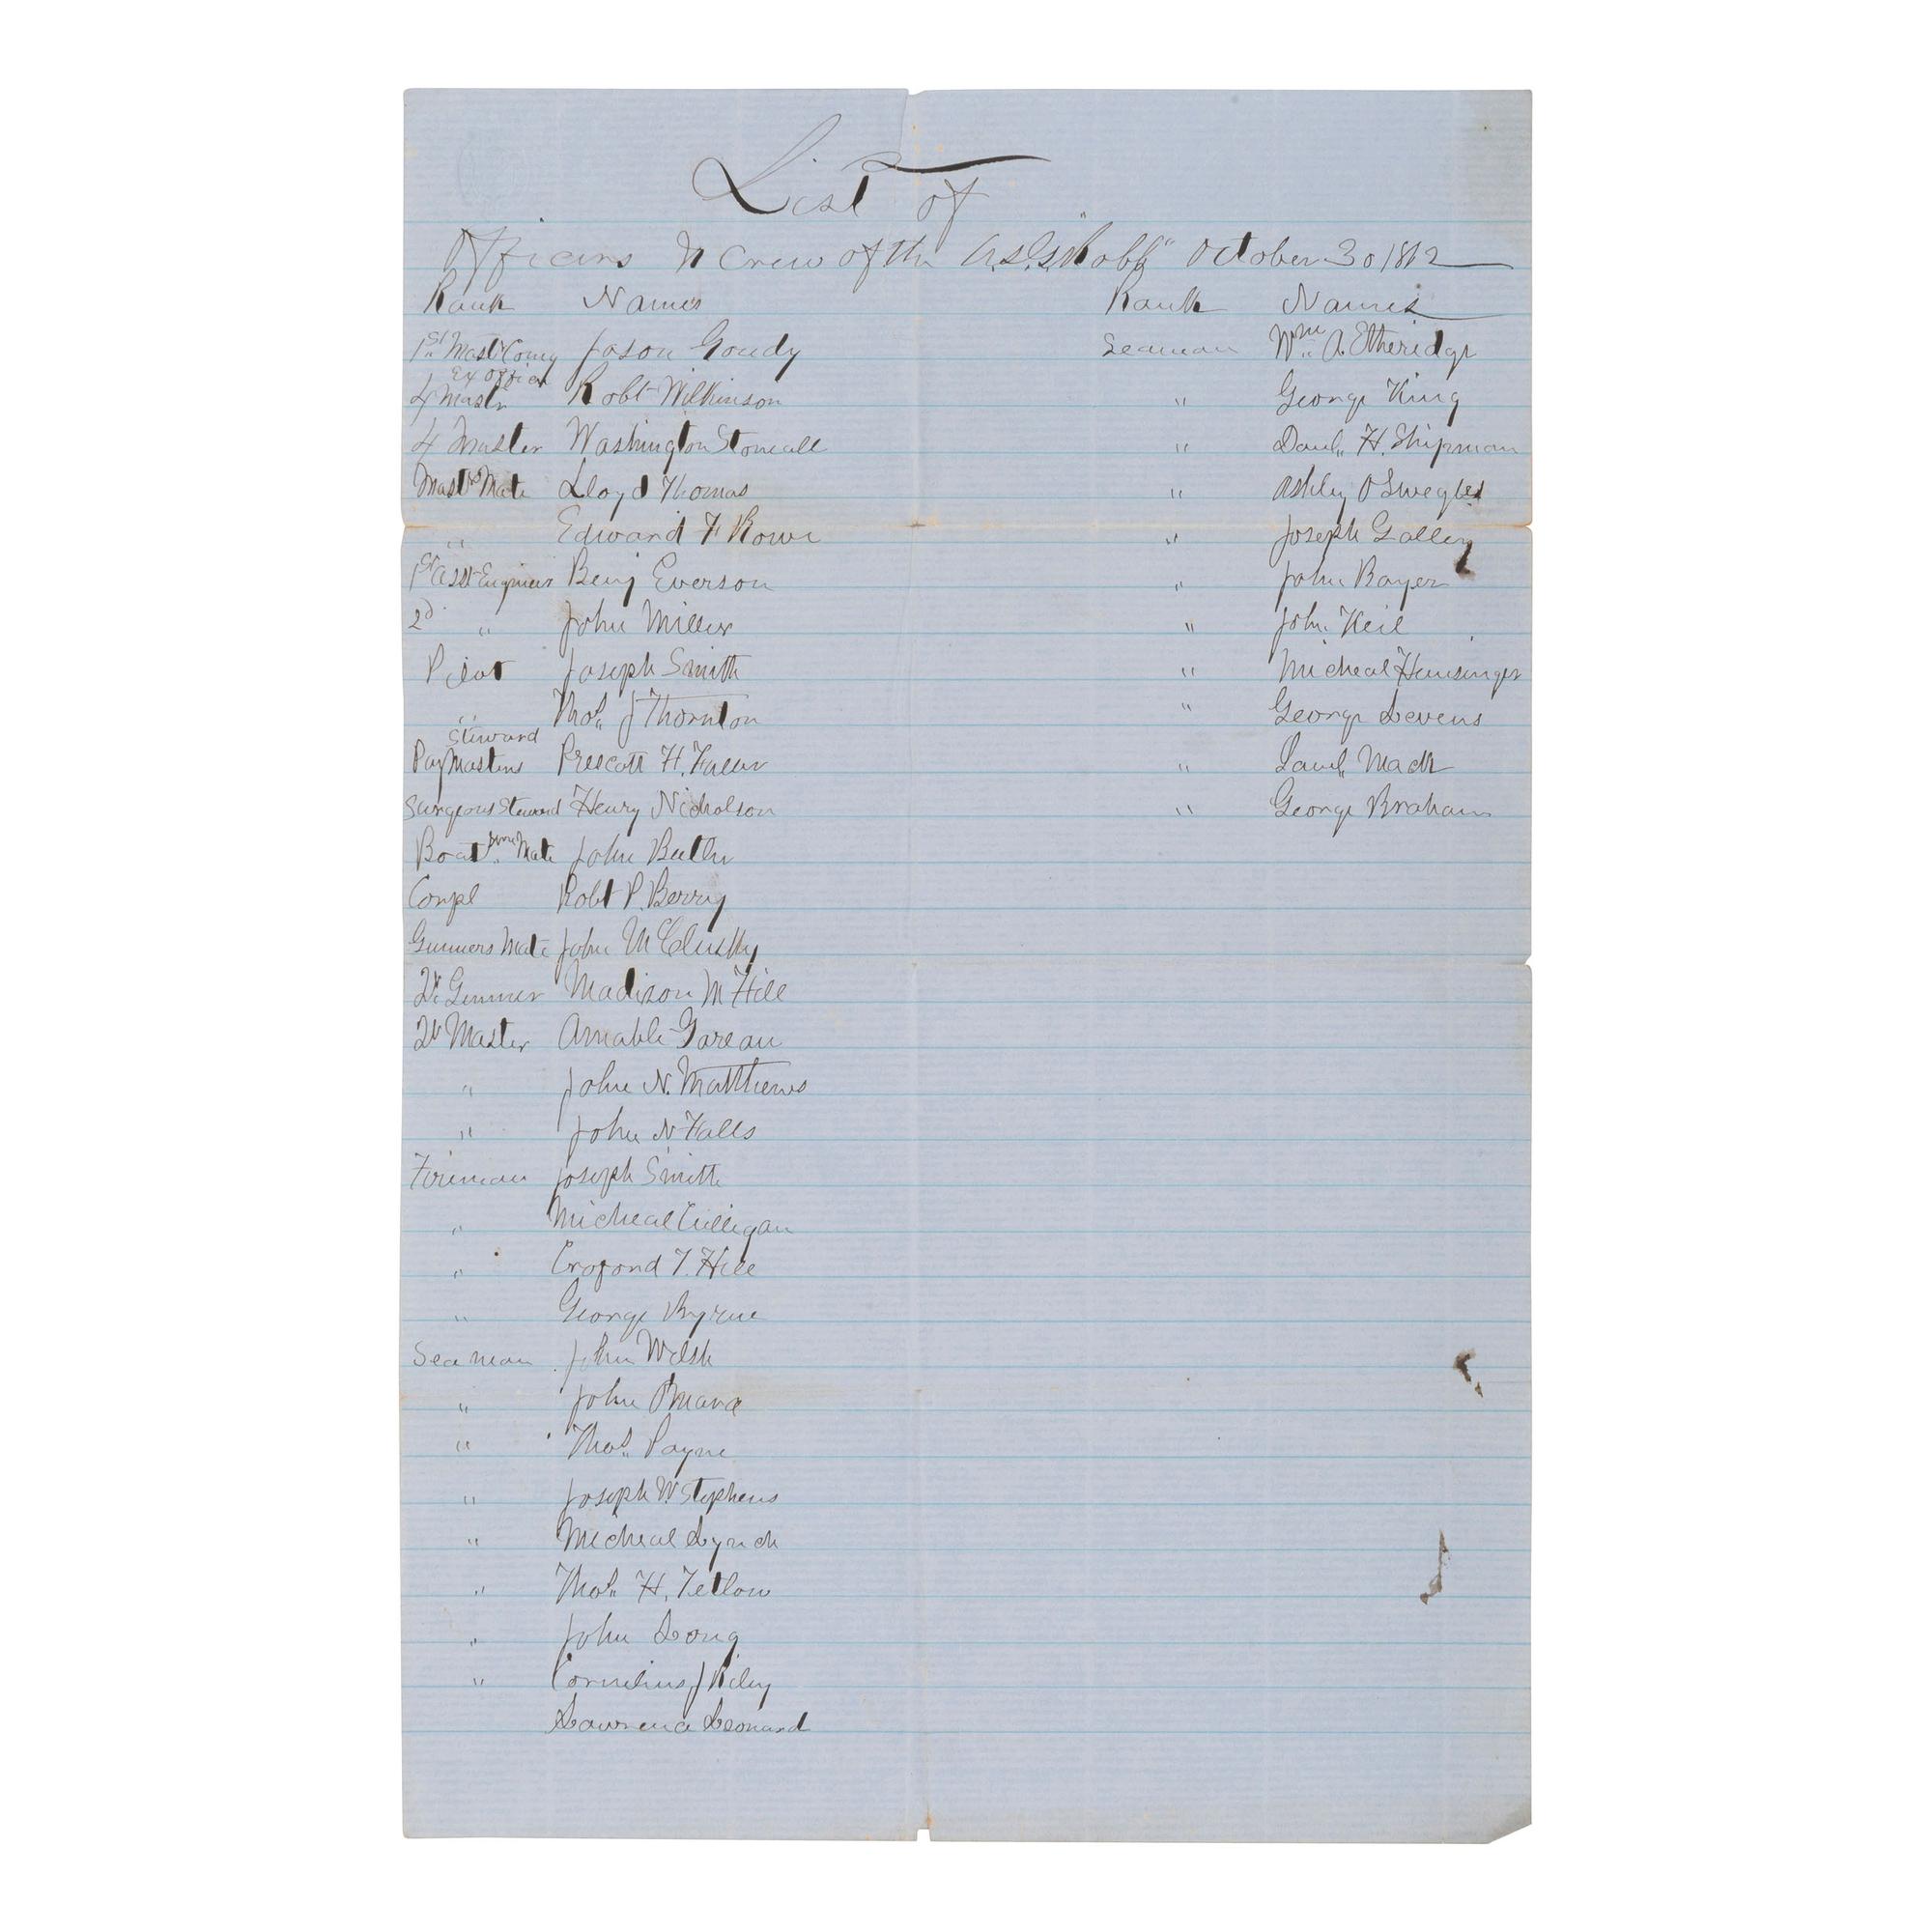 List of
Officers & Crew of the U.S.G. "Robb" October 30 1862
Rank Names Rank Names
1st Mast Comg Jason Goudy Seaman Wm. A. Etheridge
Ex Officer
4 Mastr Robt Wilkinson " George King
4 Master Washington Stoneall " Danl. H. Shipman
Mastrs Mate Lloyd Thomas " Ashley O
" Edward F Rowe " Joseph Gallen
1st Asst Engineer Benj Everson " John Bayer
2d " John Miller " John Keil
Pilot Joseph Smith " Micheal Hunsinger
" Thos. J Thornton " George Levens
Steward
PayMasters Prescott H. " Saml. Mack
Surgeons Steward Henry Nicholson " George Braham
Boatswns Mate John Butler
Corpl Robt P. Berry
Gunners Mate John McClusky
Qr Gunner Madison M Hill
Qr Master Amable Gareau
" John N. Matthews
" John N Falls
Fireman Joseph Smith
" Micheal Culligan
" Croford T. Hill
" George Byrne
Seaman John Welsh
" John Omara
" Thos. Payne
" Joseph W. Stephens
" Micheal Lynch
" Thos. H. Tetlow
" John Long
" Cornelius J Riley
Lawrence Leonard